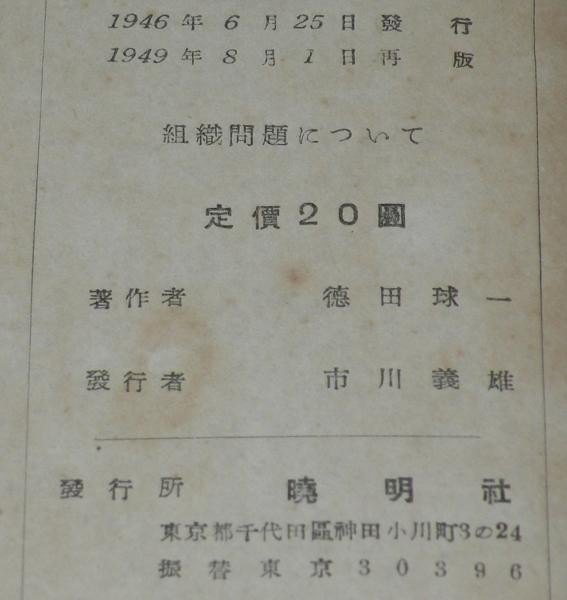 1946年6月25日發行
1949年8月1日再版
組織問題について
定價20圓
著作者 德田球一
發行者 市川義雄
發行所 曉明社
東京都千代田區神田小川町3の24
振替東京30396